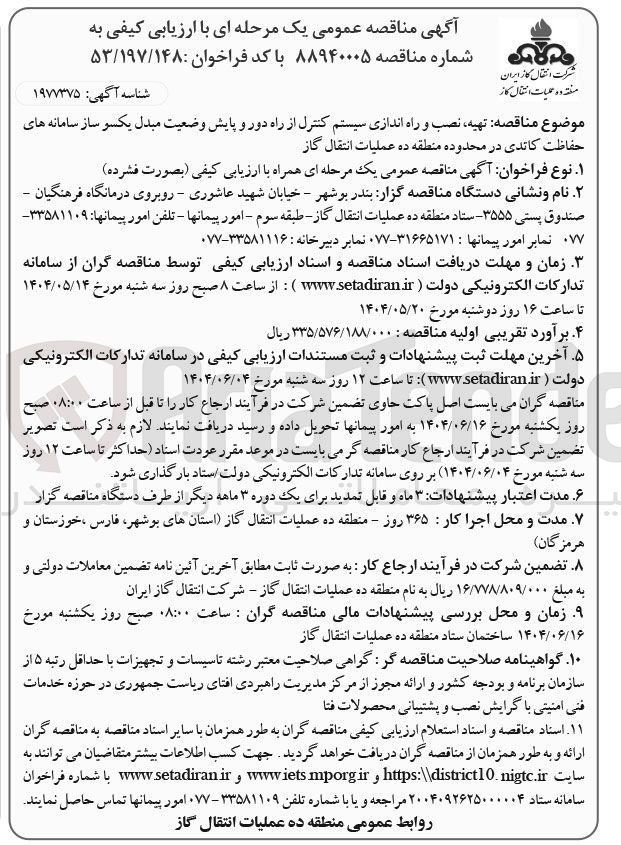 آگهی مناقصه عمومی یک مرحله ای با ارزیابی کیفی به
شماره مناقصه ۸۸۹۴۰۰۰۵ با کد فراخوان :۵۳/۱۹۷/۱۴۸
شرکت انتقال گاز ایران
منطقه ده عملیات انتقال گاز
شناسه آگهی: ۱۹۷۷۳۷۵
موضوع مناقصه: تهیه، نصب و راه اندازی سیستم کنترل از راه دور و پایش وضعیت مبدل یکسو ساز سامانه های
حفاظت کاتدی در محدوده منطقه ده عملیات انتقال گاز
۱. نوع فراخوان: آگهی مناقصه عمومی یک مرحله ای همراه با ارزیابی کیفی (بصورت فشرده)
۲. نام ونشانی دستگاه مناقصه گزار: بندر بوشهر - خیابان شهید عاشوری - روبروی درمانگاه فرهنگیان -
صندوق پستی ۳۵۵۵- ستاد منطقه ده عملیات انتقال گاز- طبقه سوم - امور پیمانها - تلفن امور پیمانها: ۳۳۵۸۱۱۰۹-
۰۷۷ نمابر امور پیمانها : ۳۱۶۶۵۱۷۱-۰۷۷ نمابر دبیرخانه : ۳۳۵۸۱۱۱۶-۰۷۷
۳. زمان و مهلت دریافت اسناد مناقصه و اسناد ارزیابی کیفی توسط مناقصه گران از سامانه
تدارکات الکترونیکی دولت ( www.setadiran.ir ) : از ساعت ۸ صبح روز سه شنبه مورخ ۱۴۰۴/۰۵/۱۴
تا ساعت ۱۶ روز دوشنبه مورخ ۱۴۰۴/۰۵/۲۰
۴. برآورد تقریبی اولیه مناقصه : ۳۳۵/۵۷۶/۱۸۸/۰۰۰ ریال
۵. آخرین مهلت ثبت پیشنهادات و ثبت مستندات ارزیابی کیفی در سامانه تدارکات الکترونیکی
دولت ( www.setadiran.ir): تا ساعت ۱۲ روز سه شنبه مورخ ۱۴۰۴/۰۶/۰۴
مناقصه گران می بایست اصل پاکت حاوی تضمین شرکت در فرآیند ارجاع کار را تا قبل از ساعت ۰۸:۰۰ صبح
روز یکشنبه مورخ ۱۴۰۴/۰۶/۱۶ به امور پیمانها تحویل داده و رسید دریافت نمایند. لازم به ذکر است تصویر
تضمین شرکت در فرآیند ارجاع کار مناقصه گر می بایست در موعد مقرر عودت اسناد (حداکثر تا ساعت ۱۲ روز
سه شنبه مورخ ۱۴۰۴/۰۶/۰۴) بر روی سامانه تدارکات الکترونیکی دولت/ستاد بارگذاری شود.
۶. مدت اعتبار پیشنهادات: ۳ ماه و قابل تمدید برای یک دوره ۳ ماهه دیگر از طرف دستگاه مناقصه گزار
۷. مدت و محل اجرا کار : ۳۶۵ روز - منطقه ده عملیات انتقال گاز (استان های بوشهر، فارس ،خوزستان و
هرمزگان)
۸. تضمین شرکت در فرآیند ارجاع کار : به صورت ثابت مطابق آخرین آئین نامه تضمین معاملات دولتی و
به مبلغ ۱۶/۷۷۸/۸۰۹/۰۰۰ ریال به نام منطقه ده عملیات گاز - شرکت انتقال گاز ایران
۹. زمان و محل بررسی پیشنهادات مالی مناقصه گران : ساعت ۰۸:۰۰ صبح روز یکشنبه مورخ
۱۴۰۴/۰۶/۱۶ ساختمان ستاد منطقه ده عملیات انتقال گاز
۱۰. گواهینامه صلاحیت مناقصه گر : گواهی صلاحیت معتبر رشته تاسیسات و تجهیزات با حداقل رتبه ۵ از
سازمان برنامه و بودجه کشور و ارائه مجوز از مرکز مدیریت راهبردی افتای ریاست جمهوری در حوزه خدمات
فنی امنیتی با گرایش نصب و پشتیبانی محصولات فتا
۱۱. اسناد مناقصه و اسناد استعلام ارزیابی کیفی مناقصه گران به طور همزمان با سایر اسناد مناقصه به مناقصه گران
ارائه و به طور همزمان از مناقصه گران دریافت خواهد گردید . جهت کسب اطلاعات بیشترمتقاضیان می توانند به
سایت https:\\district10.nigtc.ir و www.iets.mporg.ir و www.setadiran.ir با شماره فراخوان
سامانه ستاد ۲۰۰۴۰۹۲۶۲۵۰۰۰۰۰۴ مراجعه و یا با شماره تلفن ۳۳۵۸۱۱۰۹-۰۷۷ امور پیمانها تماس حاصل نمایند.
روابط عمومی منطقه ده عملیات انتقال گاز